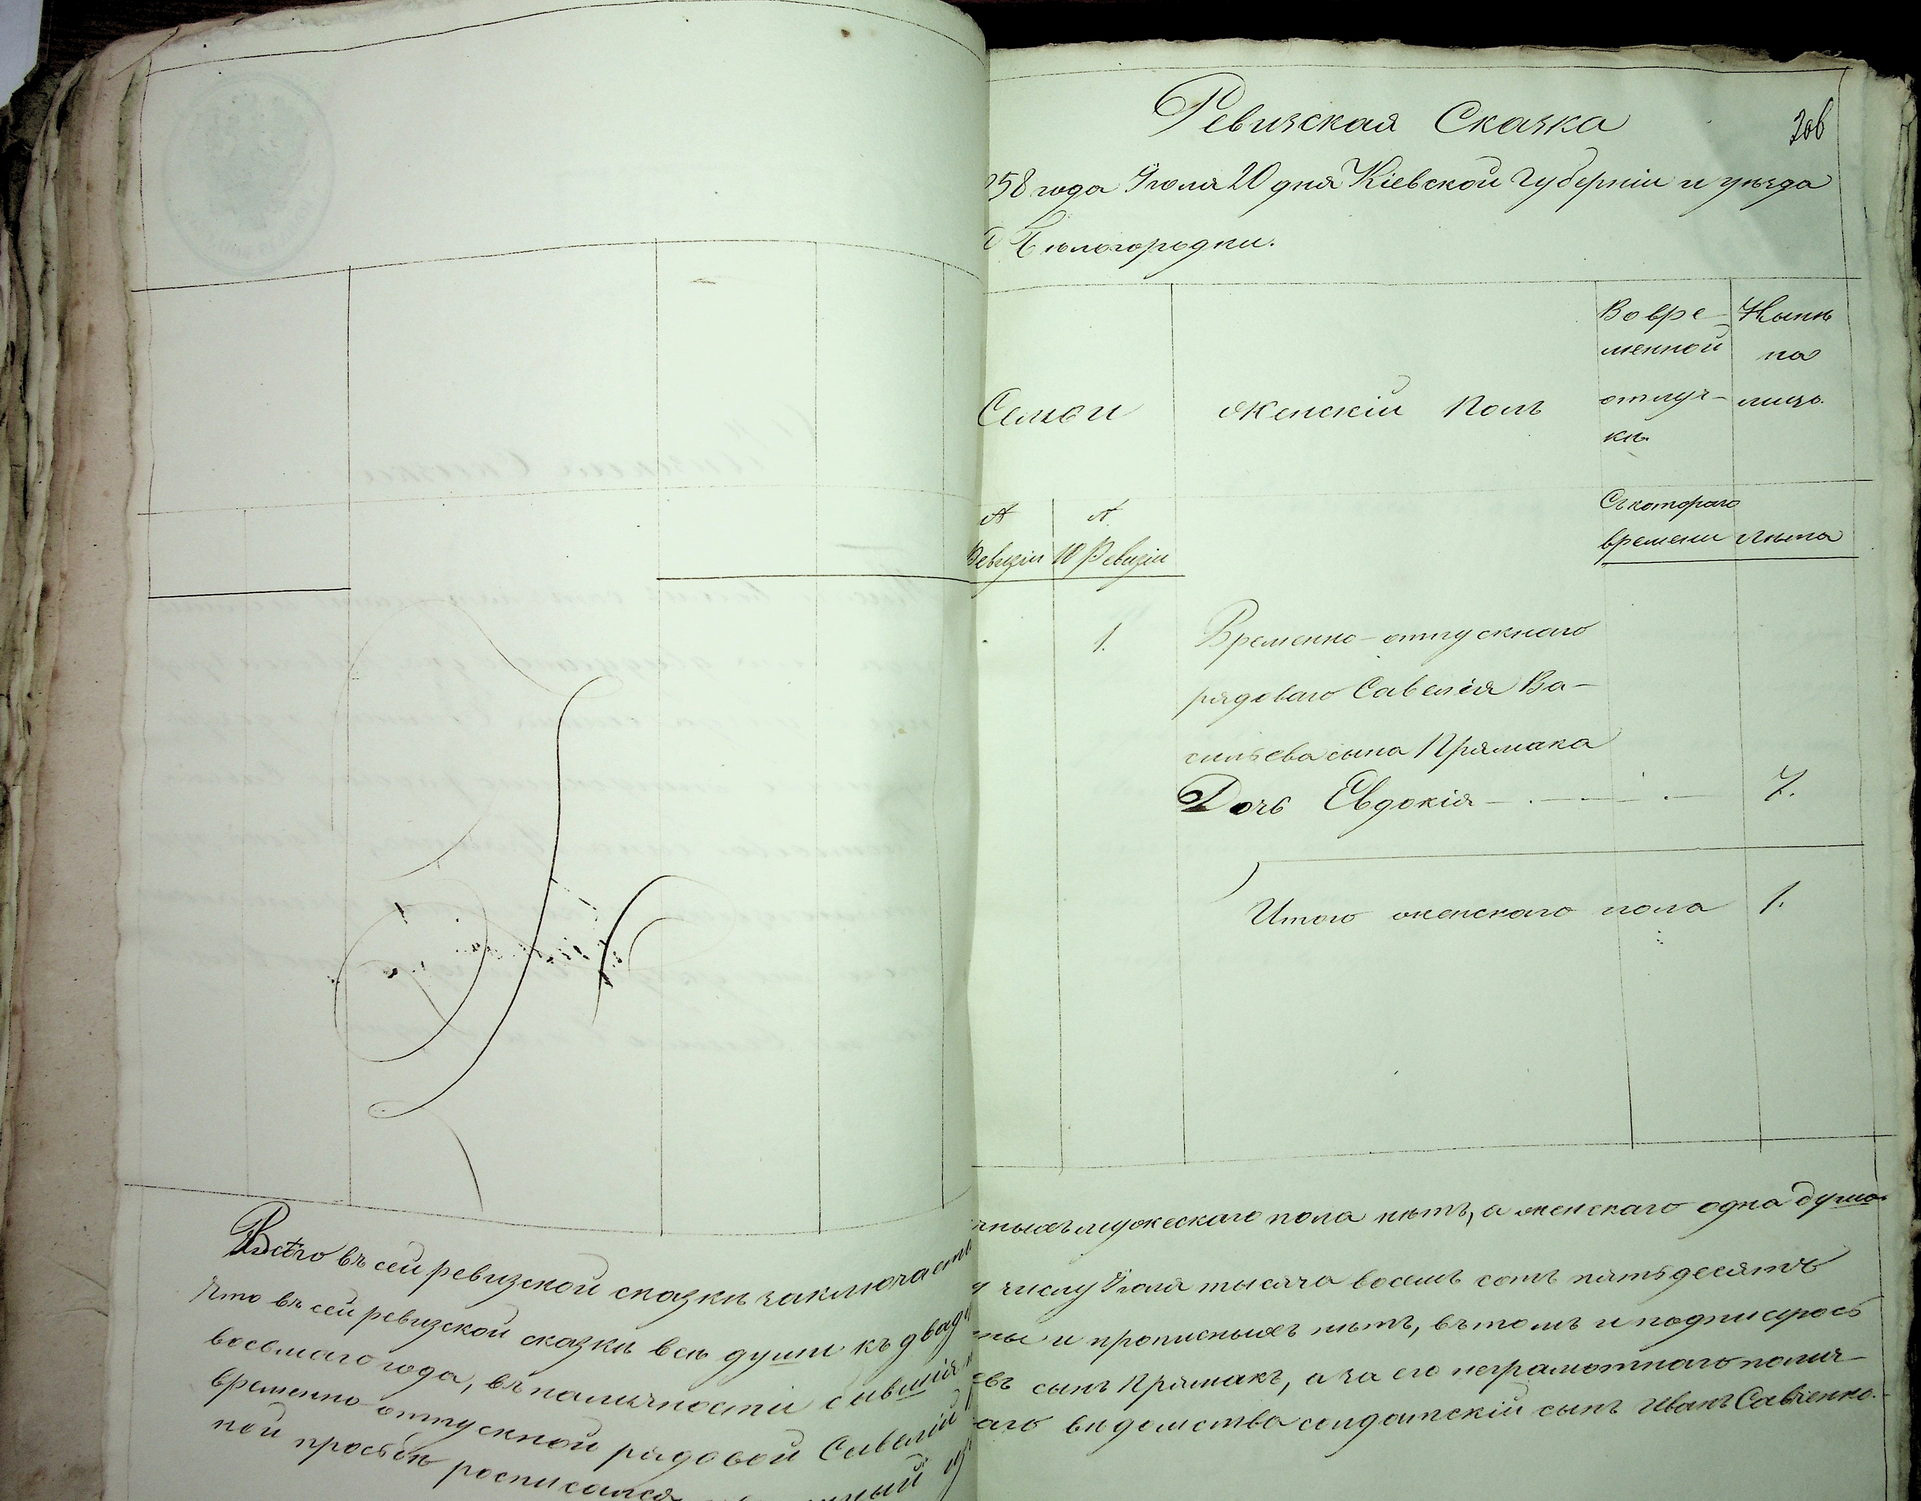 Ревизская Сказка
206
858 года Іюля 20 дня Кіевской Губерніи и уѣзда
Бѣлогородки.
Семьи
Женскій Полъ
Во вре-
менной
отлуч-
кѣ.
Нынѣ
на
лицо.
№
Ревизіи
№
10 Ревизіи
Съ котораго
времени
Лѣта
1.
Временно-отпускнаго
рядоваго Савелія Ва-
сильева сына Прямака
Дочь Евдокія 7.
Итого женскаго пола 1.
Всего въ сей ревизской сказкѣ заключается
мужескаго пола нѣтъ, а женскаго одна душа.
Что въ сей ревизской сказкѣ всѣ души къ двад
числу Іюля тысяча восемь сотъ пятьдесятъ
восьмаго года, въ наличности бывшія
и прописныхъ нѣтъ, въ томъ и подписуюсь
временно-отпускной рядовой Савелій
евъ сынъ Прямакъ, а за его неграмотнаго полич-
ной просьбѣ росписался
аго вѣдомства солдатскій сынъ Иванъ Савченко.